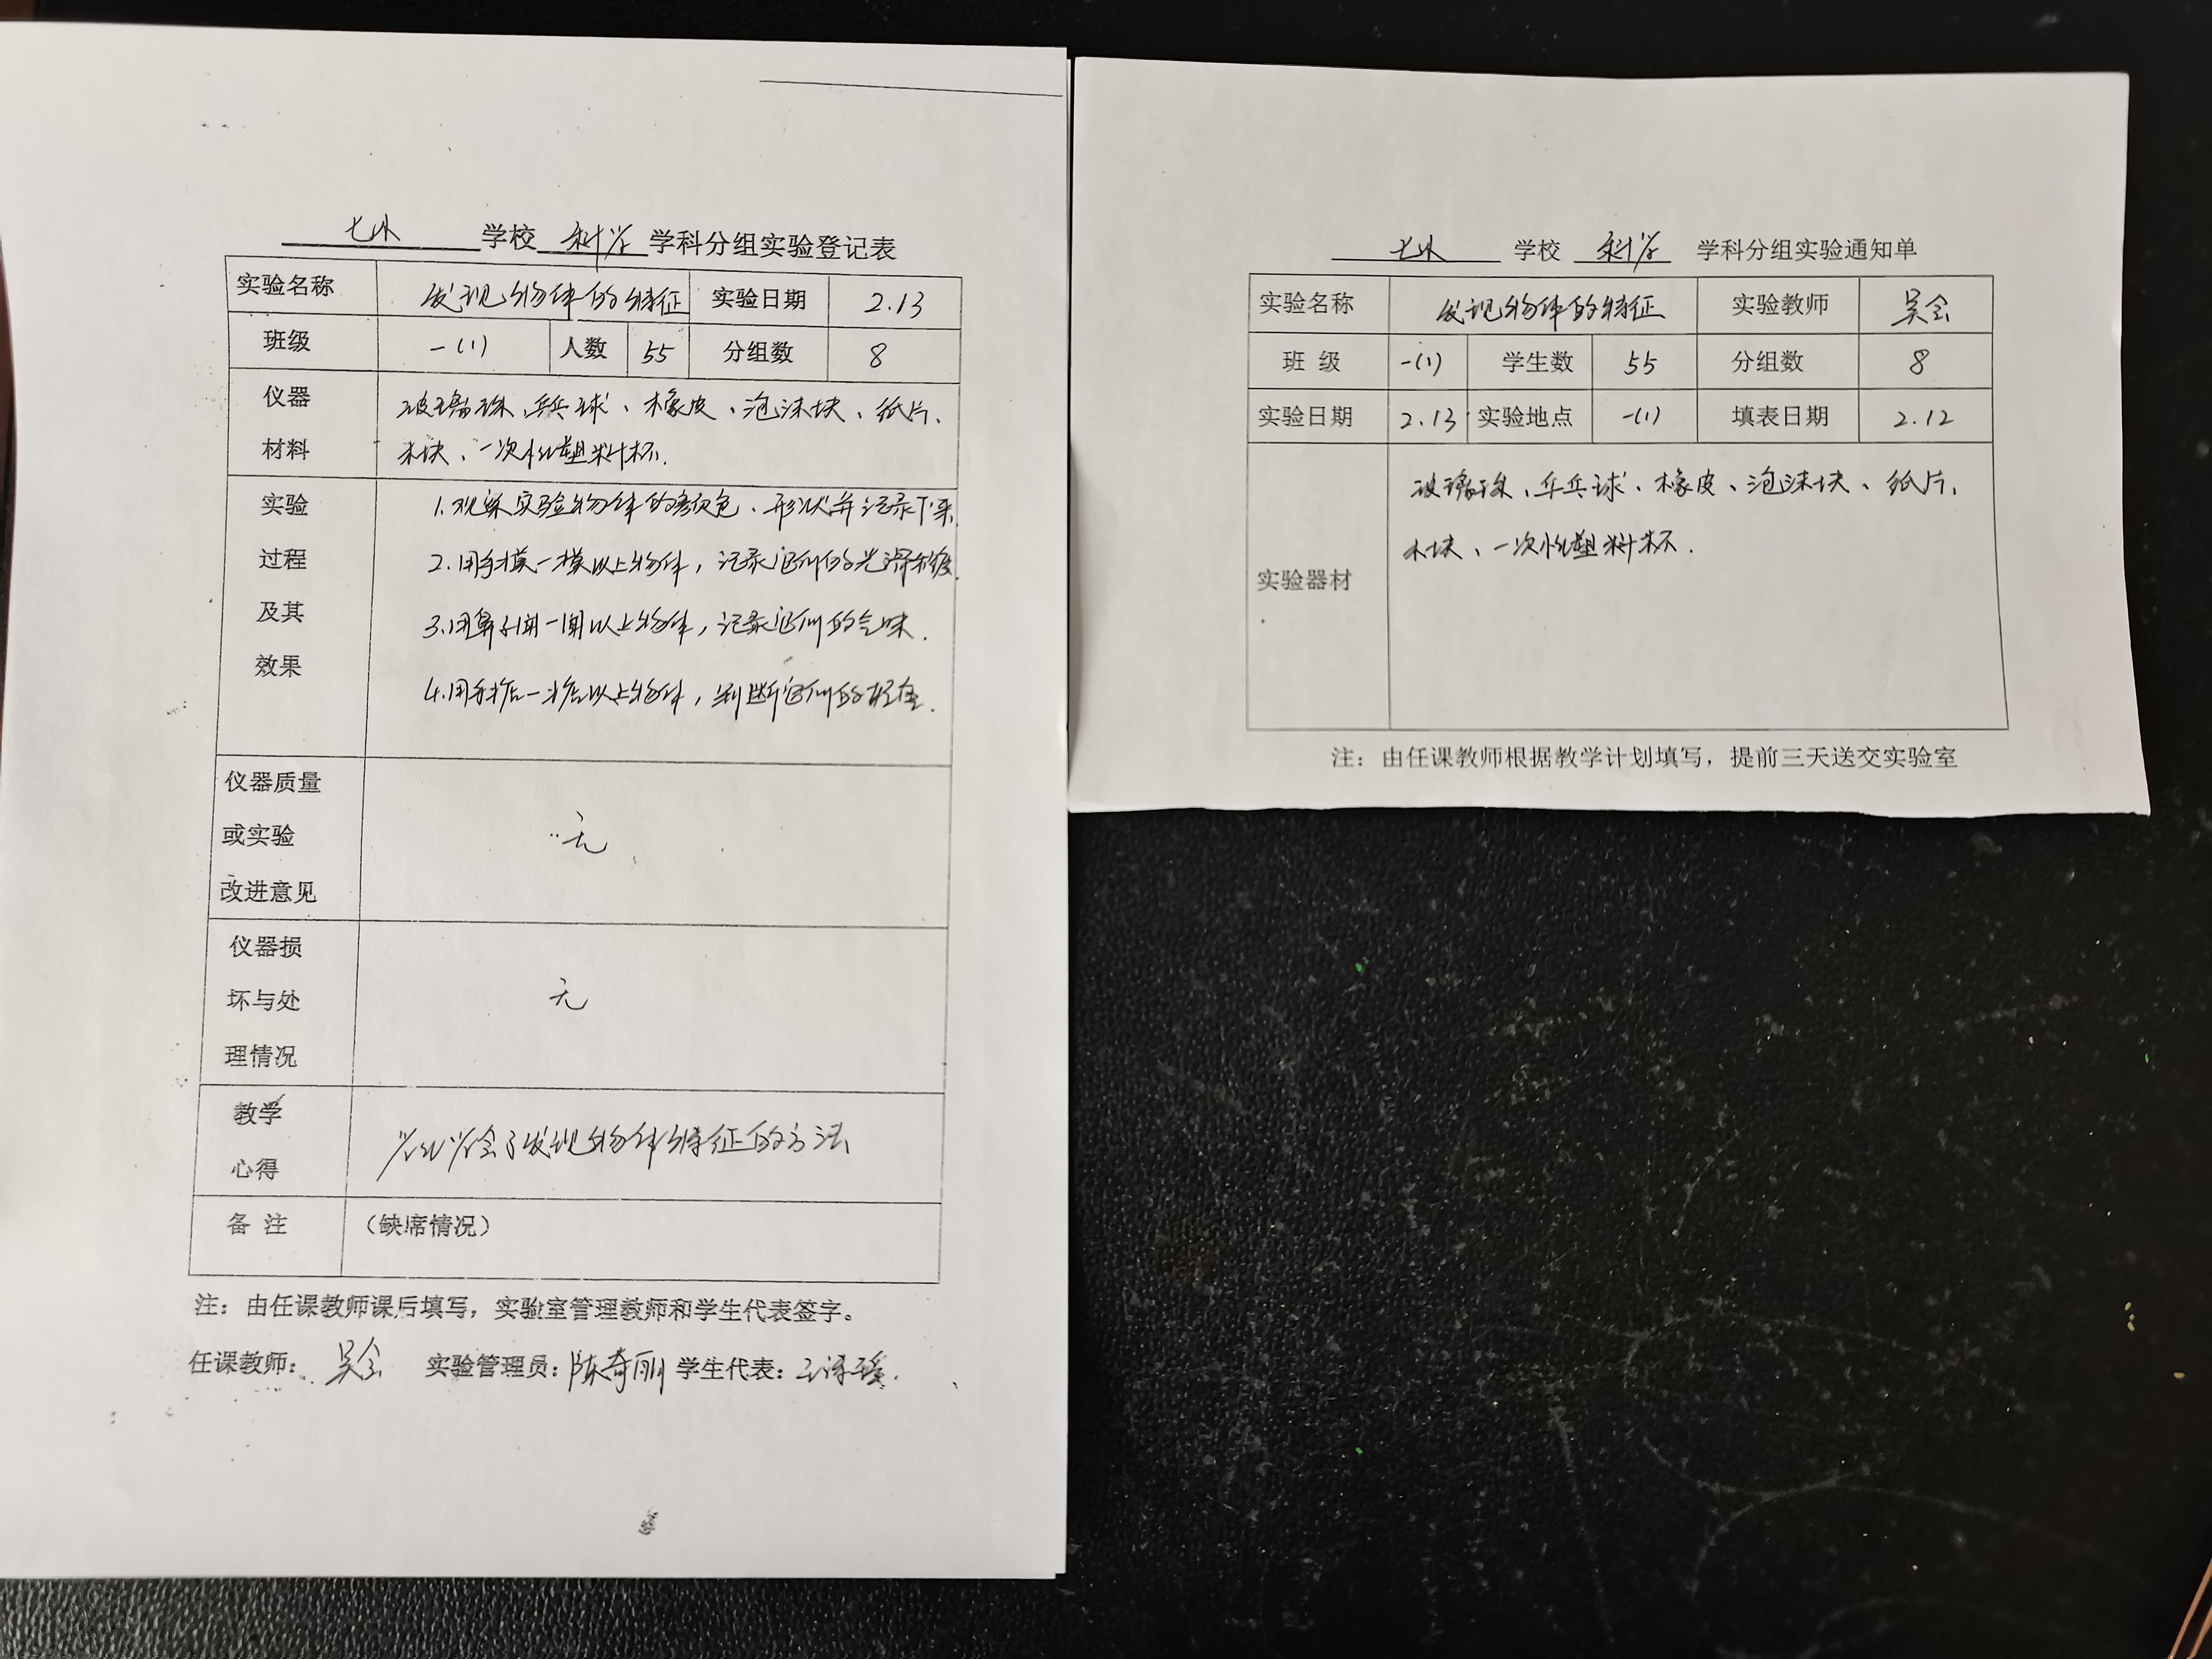 七小 学校 科学 学科分组实验登记表
实验名称 发现物体的特征 实验日期 2.13
班级 一(1) 人数 55 分组数 8
仪器 玻璃珠、乒乓球、橡皮、泡沫块、纸片、
材料 木块、一次性塑料杯.
实验 1.观察实验物体的颜色、形状并记录下来.
过程 2.用手摸一摸以上物体，记录它们的光滑程度.
及其 3.用鼻子闻一闻以上物体，记录它们的气味.
效果 4.用手掂一掂以上物体，判断它们的轻重.
仪器质量
或实验 无
改进意见
仪器损
坏与处 无
理情况
教学 学生学会了发现物体特征的方法
心得
备 注 （缺席情况）
注：由任课教师课后填写，实验室管理教师和学生代表签字。
任课教师： 吴会 实验管理员：陈奇刚 学生代表：
七小 学校 科学 学科分组实验通知单
实验名称 发现物体的特征 实验教师 吴会
班 级 一(1) 学生数 55 分组数 8
实验日期 2.13 实验地点 一(1) 填表日期 2.12
实验器材 玻璃珠、乒乓球、橡皮、泡沫块、纸片、
木块、一次性塑料杯.
注：由任课教师根据教学计划填写，提前三天送交实验室